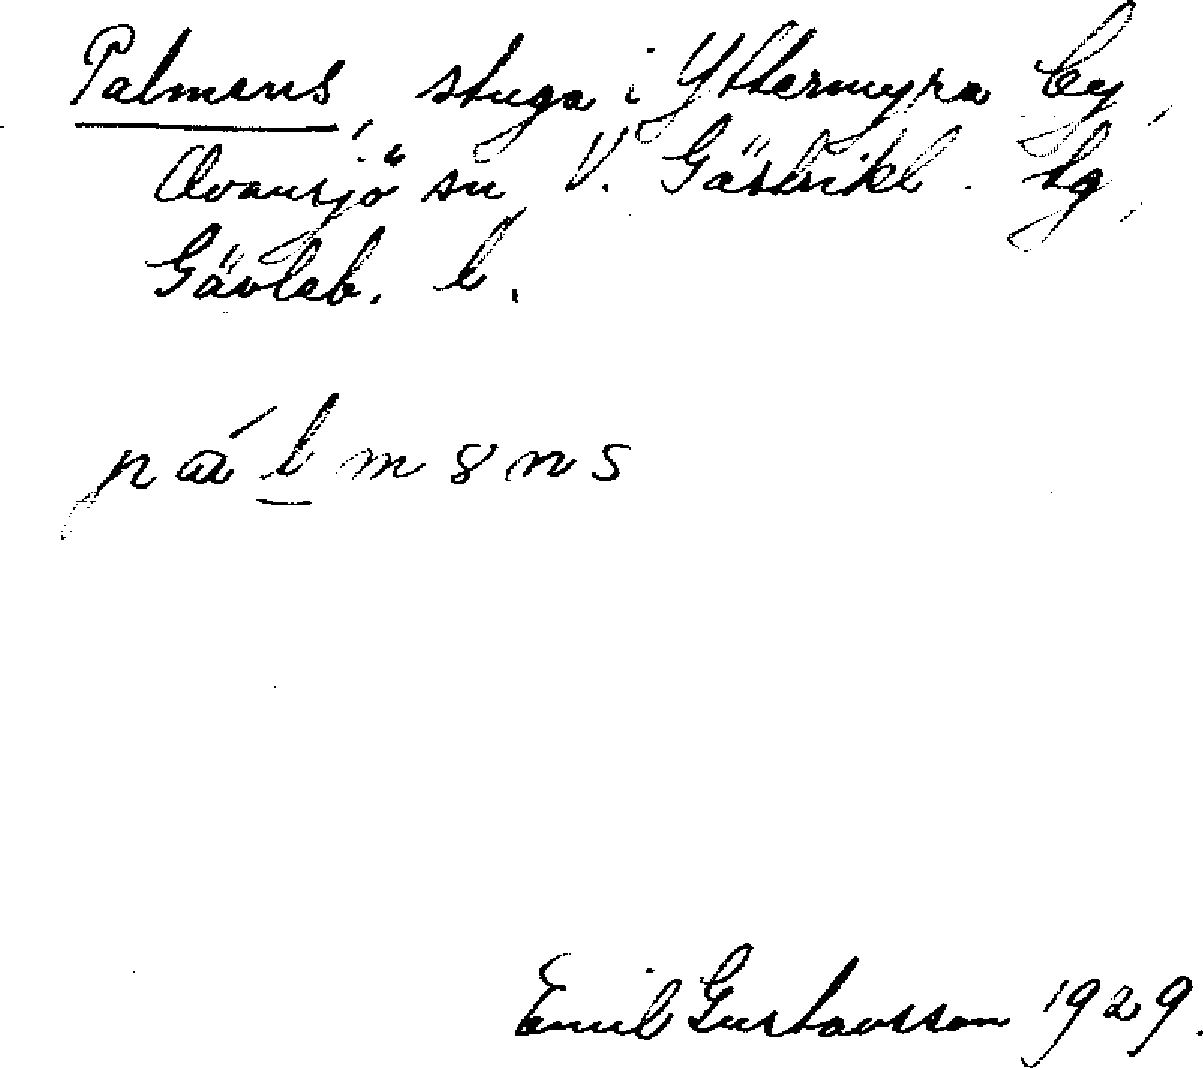 Palmens, stuga i Yttermyra by,
Ovansjö sn, V. Gästrikl. tg,
Gävleb. l.
Emil Gustavsson 1929.